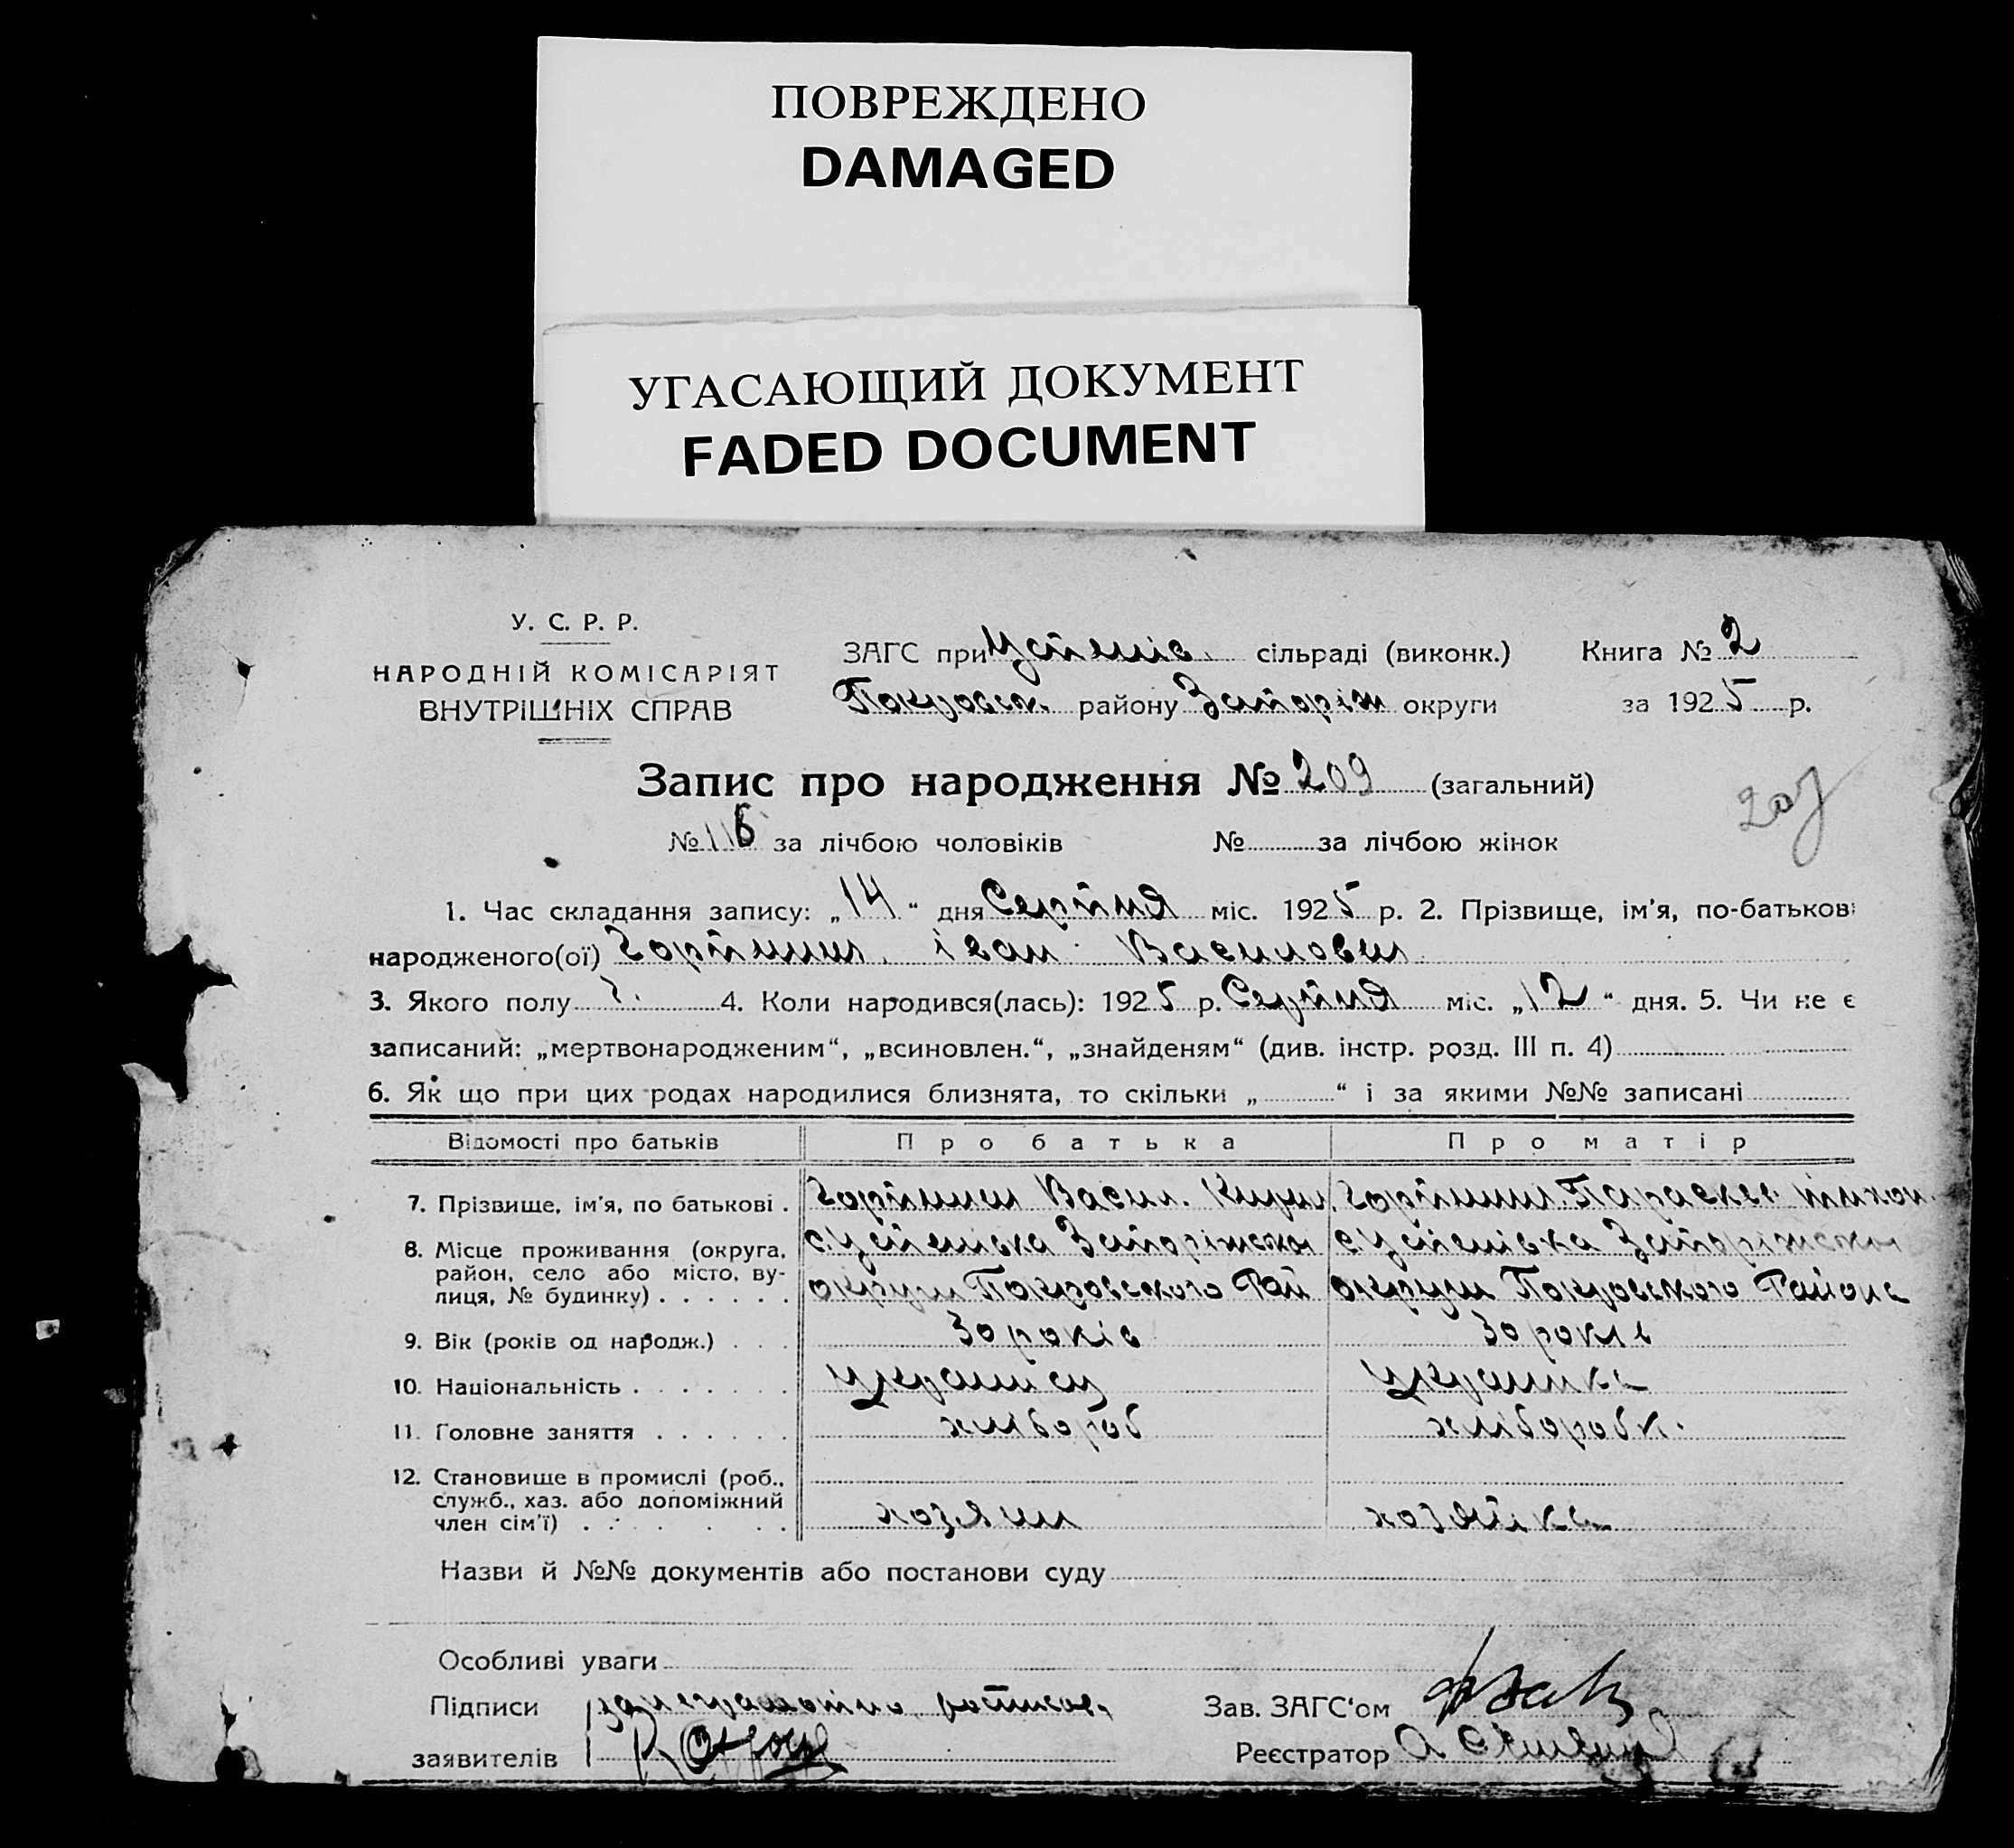 ПОВРЕЖДЕНО
DAMAGED
УГАСАЮЩИЙ ДОКУМЕНТ
FADED DOCUMENT
У. С. Р. Р.
НАРОДНІЙ КОМІСАРІЯТ
ВНУТРІШНІХ СПРАВ
ЗАГС при Успенів. сільраді (виконк.) Книга № 2
Покровськ. району Запоріж округи за 1925 р.
Запис про народження № 209 (загальний)
209
№ 116 за лічбою чоловіків № за лічбою жінок
1. Час складання запису: „14“ дня Серпня міс. 1925 р. 2. Прізвище, ім'я, по-батькові
народженого(ої) Іван Василович
3. Якого полу ч. 4. Коли народився(лась): 1925 р. Серпня міс. „12“ дня. 5. Чи не є
записаний: „мертвонародженим“, „всиновлен.“, „знайденям“ (див. інстр. розд. III п. 4)
6. Як що при цих родах народилися близнята, то скільки „ “ і за якими №№ записані
Відомості про батьків Про батька Про матір
7. Прізвище, ім'я, по батькові . Васил. Кирил. Параскев. тихон.
8. Місце проживання (округа, с. Успенівка Запоріжської с. Успенівка Запоріжської
район, село або місто, ву-
лиця, № будинку) . . . . . . округи Покровського Рай округи Покровського Района
9. Вік (років од народж.) . . . 30 років 30 років
10. Національність . . . . . . . українец українка
11. Головне заняття . . . . . . хлібороб хлібороbк.
12. Становище в промислі (роб.,
служб., хаз. або допоміжний
член сім'ї) . . . . . . хозяин хозяйка
Назви й №№ документів або постанови суду
Особливі уваги
Підписи росписав. Зав. ЗАГС'ом
заявителів Реєстратор